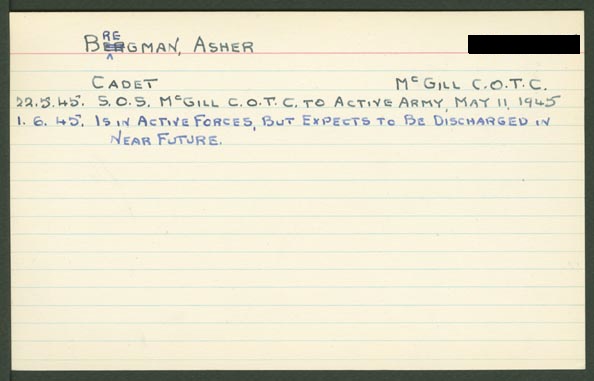 BREGMAN, ASHER
CADET McGILL C.O.T.C.
22.5.45. S.O.S. McGILL C.O.T.C. TO ACTIVE ARMY, MAY 11, 1945
1.6.45. IS IN ACTIVE FORCES, BUT EXPECTS TO BE DISCHARGED IN
NEAR FUTURE.